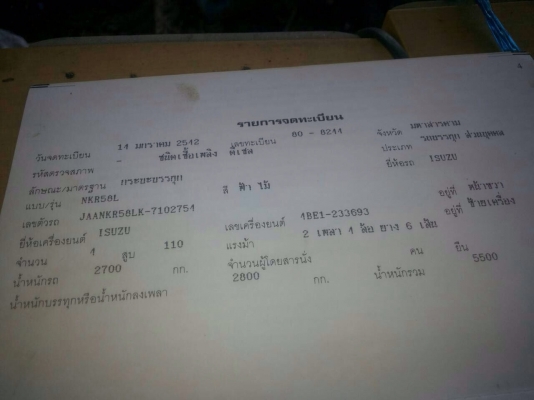 รายการจดทะเบียน
วันจดทะเบียน 14 มกราคม 2542 เลขทะเบียน 80 - 8244 จังหวัด มหาสารคาม
รหัสตรวจสภาพ - ชนิดเชื้อเพลิง ดีเซล ประเภท รถบรรทุก ส่วนบุคคล
ลักษณะ/มาตรฐาน กระบะบรรทุก ยี่ห้อรถ ISUZU
แบบ/รุ่น NKR58L สี ฟ้า
เลขตัวรถ JAANKR58LK-7102754 อยู่ที่
ยี่ห้อเครื่องยนต์ ISUZU เลขเครื่องยนต์ 4BE1-233693 อยู่ที่ ซ้ายเครื่อง
จำนวน 4 สูบ 110 แรงม้า 2 เพลา 4 ล้อ ยาง 6 เส้น
น้ำหนักรถ 2700 กก. จำนวนผู้โดยสารนั่ง คน ยืน
น้ำหนักบรรทุกหรือน้ำหนักลงเพลา 2800 กก. น้ำหนักรวม 5500